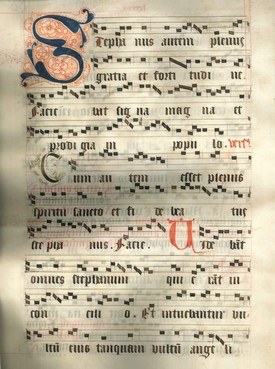 Stepha nus autem plenus
gratia et forti tudi ne.
Facie bat sig na mag na et
prodi gia in popu lo. vers.
Cum au tem esset plenus
spiritu sancto et fi de bea tus
ste pha nus. Facie. Vide bāt
omnes stephanum qui e rāt in
con cili o. Et intuebantur vul
tū eius tanquam vultū ange li